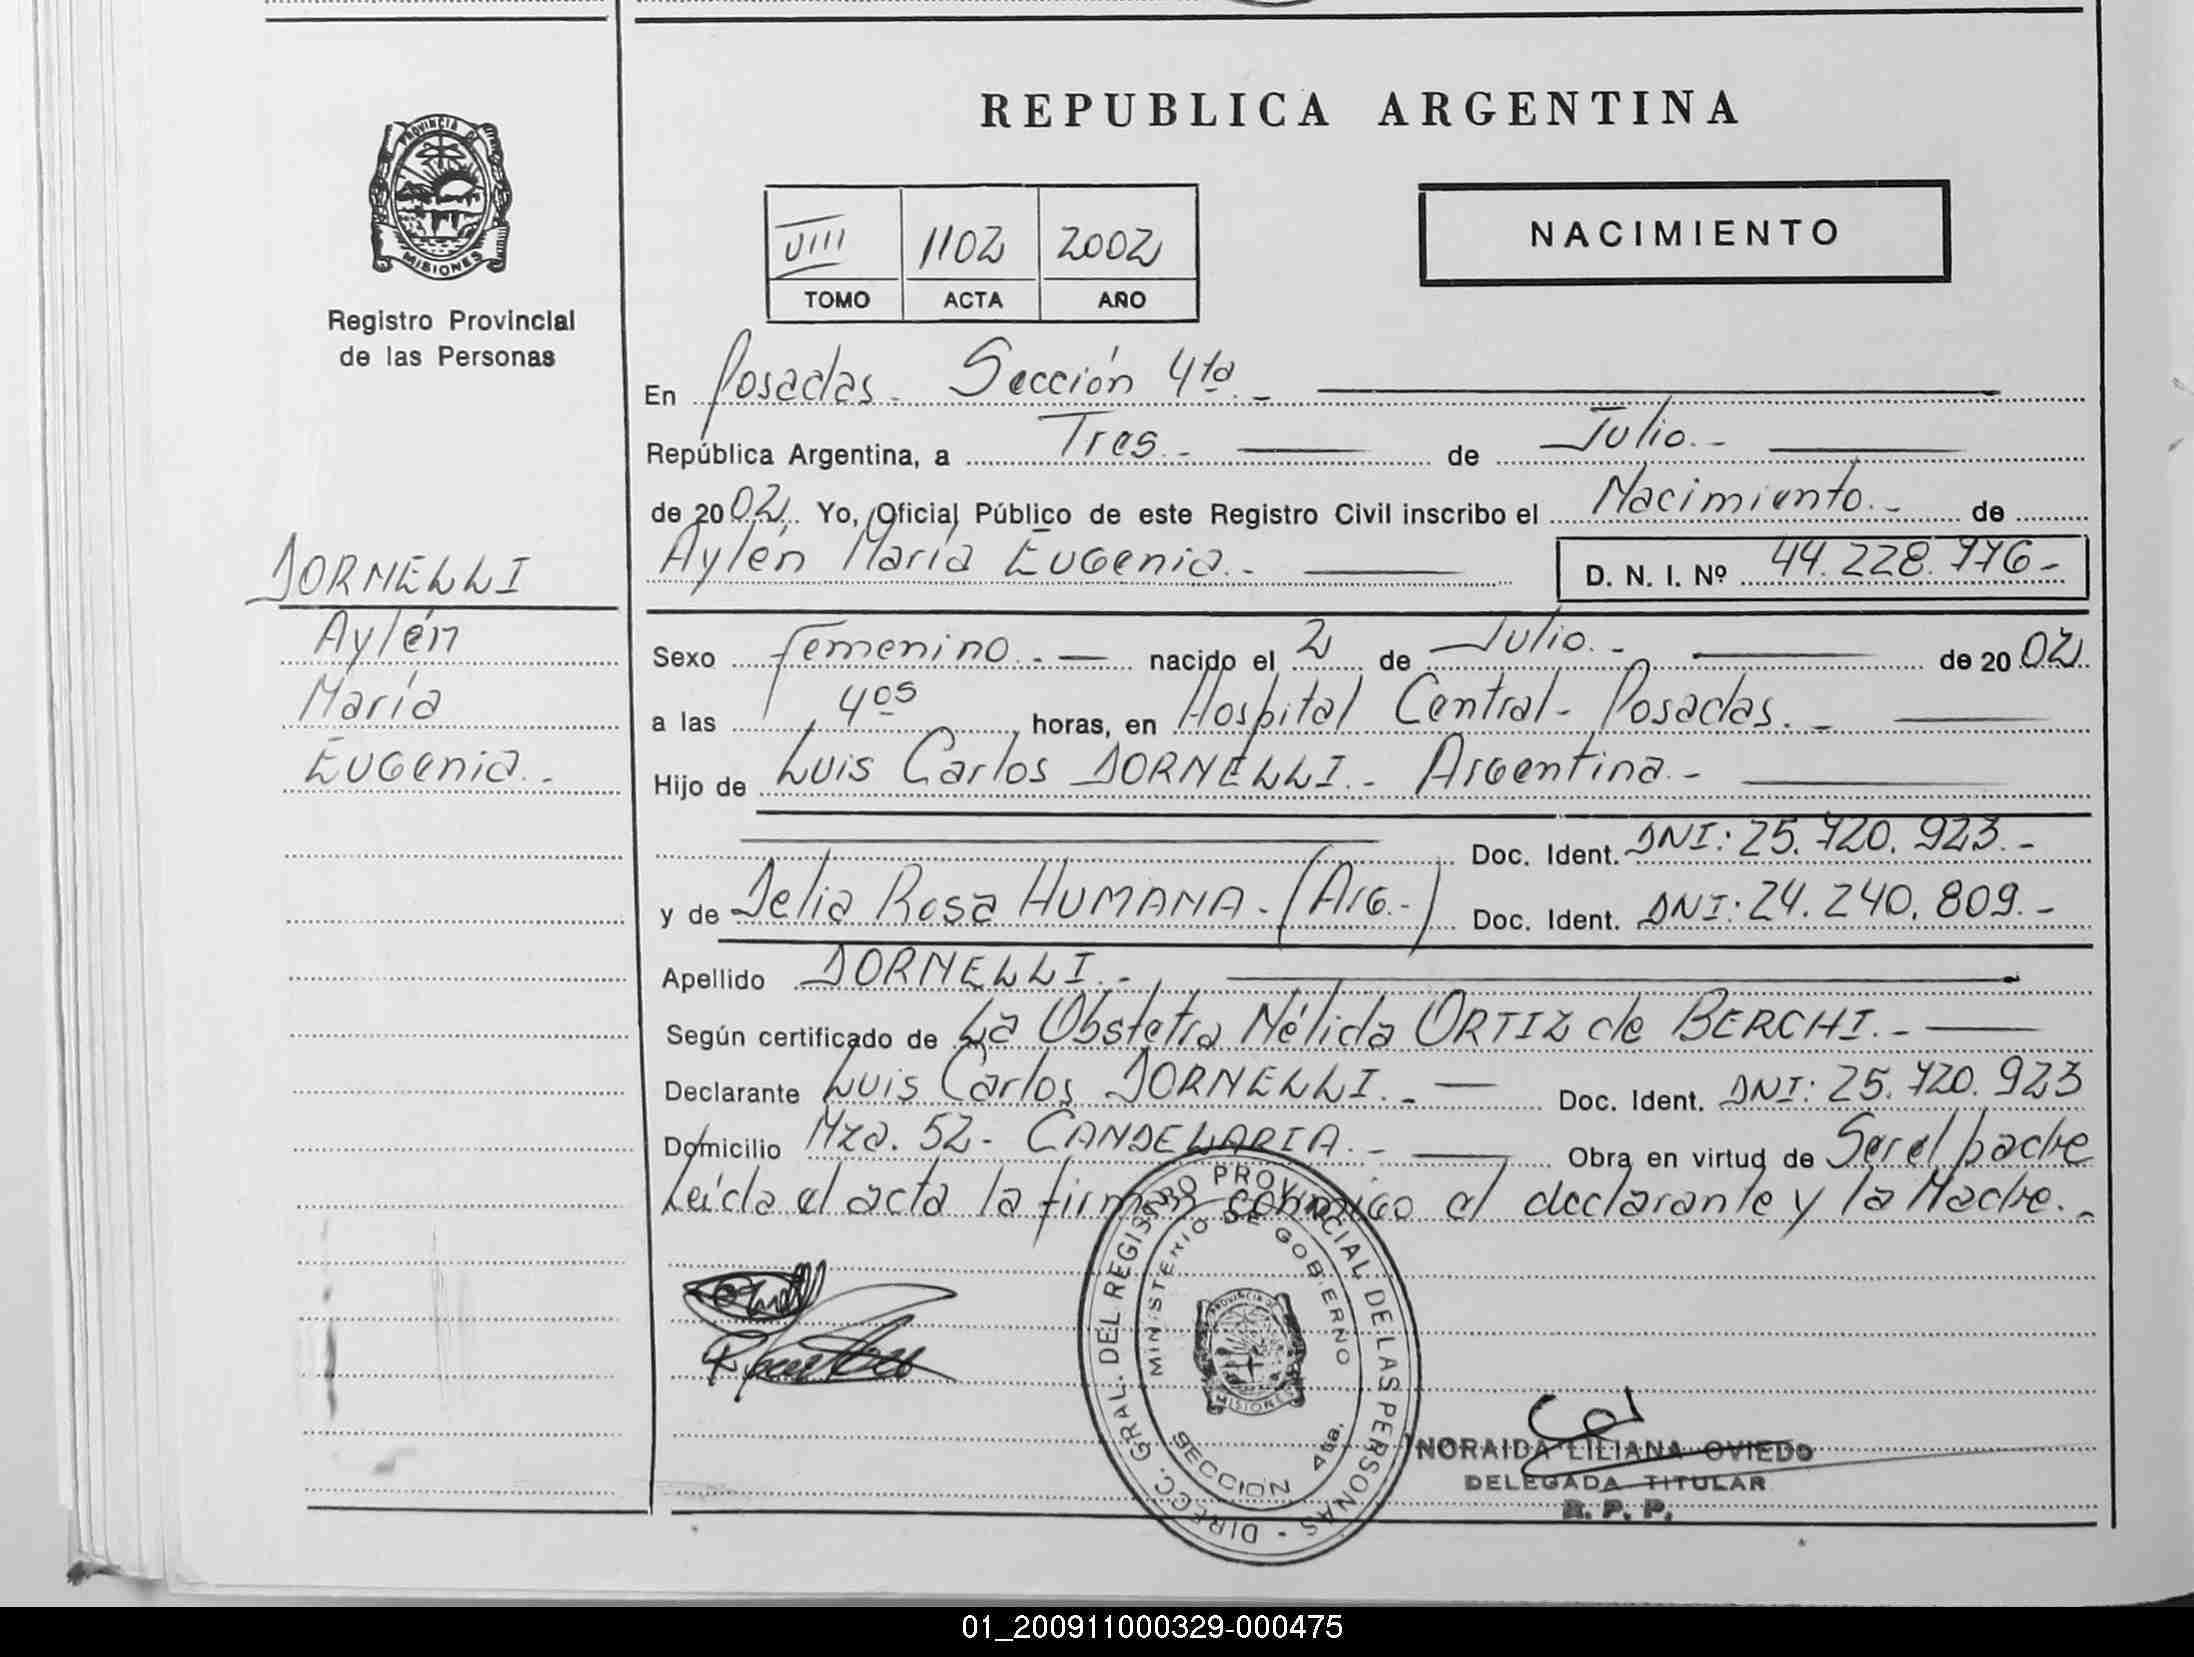 REPUBLICA ARGENTINA
PROVINCIA DE
MISIONES
Registro Provincial
de las Personas
VIII 1102 2002
TOMO ACTA AÑO
NACIMIENTO
En Posadas. Sección 4ta.-
República Argentina, a Tres.- de Julio.-
de 2002. Yo, Oficial Público de este Registro Civil inscribo el Nacimiento.- de
Aylén María Eugenia.- D. N. I. Nº 44.228.776-
DORNELLI
Aylén
María
Eugenia.-
Sexo Femenino.- nacido el 2 de Julio.- de 2002
a las 4os horas, en Hospital Central- Posadas.-
Hijo de Luis Carlos DORNELLI.- Argentina.-
Doc. Ident. DNI: 25.720.923.-
y de Delia Rosa HUMANA.- (Arg.-) Doc. Ident. DNI: 24.240.809.-
Apellido DORNELLI.-
Según certificado de La Obstetra Nélida ORTIZ de BERCHI.-
Declarante Luis Carlos DORNELLI.- Doc. Ident. DNI: 25.720.923
Domicilio Mza. 52- CANDELARIA.- Obra en virtud de Ser el padre
Leída el acta la firman conmigo el declarante y la Madre.-
DIRECC. GRAL. DEL REGISTRO PROVINCIAL DE LAS PERSONAS -
MINISTERIO DE GOBIERNO
PROVINCIA DE
MISIONES
SECCION 4ta.
NORAIDA LILIANA OVIEDO
DELEGADA TITULAR
R. P. P.
01_200911000329-000475